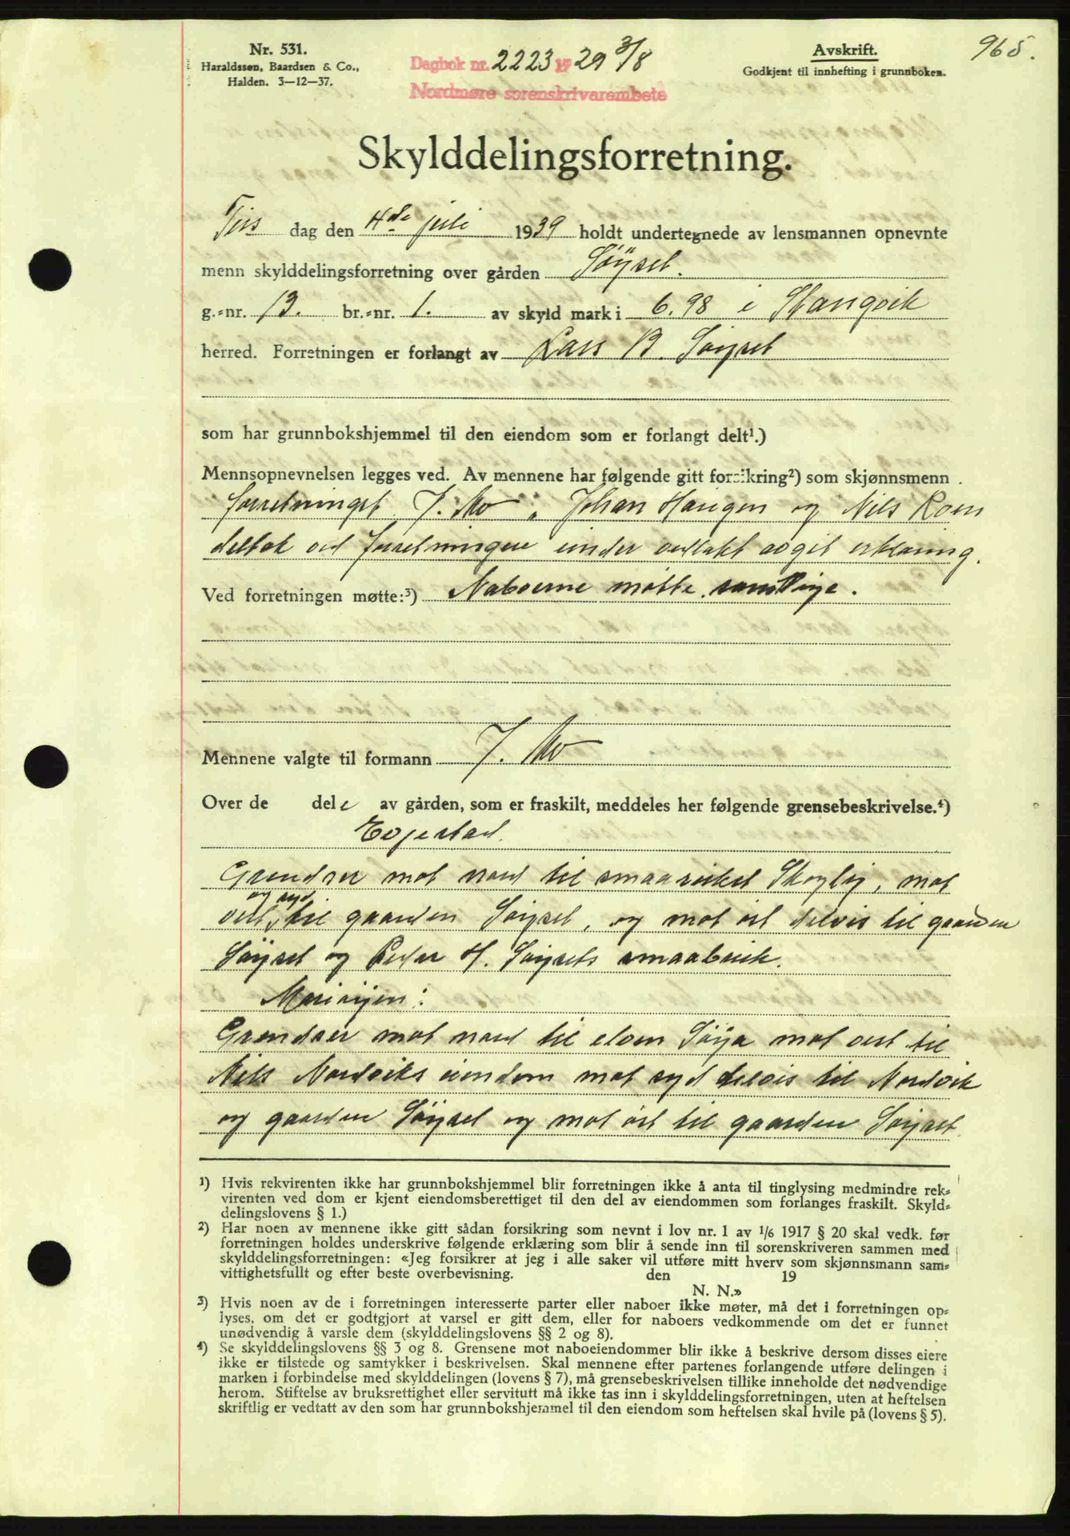 Nr. 531.
Haraldssøn, Baardsen & Co.,
Halden. 3–12–37.
Dagbok nr. 2223 19 29 3/8
Nordmøre sorenskriverembete
Avskrift.
Godkjent til innhefting i grunnboken.
965.
Skylddelingsforretning.
Tirs dag den 4de juli 1939 holdt undertegnede av lensmannen opnevnte
menn skylddelingsforretning over gården Söyset.
g.-nr. 13. br.-nr. 1. av skyld mark i 6.98 i Stangvik
herred. Forretningen er forlangt av Lars B. Söyset
som har grunnbokshjemmel til den eiendom som er forlangt delt¹.)
Mennsopnevnelsen legges ved. Av mennene har følgende gitt forsikring²) som skjønnsmenn.
forretninget J. Mo, Johan Haugen og Nils Roen
deltok ved forretningen under vedlakt avgit erklæring.
Ved forretningen møtte:³) Naboerne møtte samtlige.
Mennene valgte til formann J. Mo
Over de dele av gården, som er fraskilt, meddeles her følgende grensebeskrivelse.⁴)
Grendser mot nord til smaabruket Skogly, mot
vest og syd til gaarden Söyset, og mot öst delvis til gaarden
Söyset og Peder H. Söysets smaabruk.
Grendser mot nord til elven Söya mot vest til
Nils Nordviks eiendom mot syd delvis til Nordvik
og gaarden Söyset og mot öst til gaarden Söyset.
¹) Hvis rekvirenten ikke har grunnbokshjemmel blir forretningen ikke å anta til tinglysing medmindre rek-
virenten ved dom er kjent eiendomsberettiget til den del av eiendommen som forlanges fraskilt. Skyld-
delingslovens § 1.)
²) Har noen av mennene ikke gitt sådan forsikring som nevnt i lov nr. 1 av 1/6 1917 § 20 skal vedk. før
forretningen holdes underskrive følgende erklæring som blir å sende inn til sorenskriveren sammen med
skylddelingsforretningen: «Jeg forsikrer at jeg i alle saker vil utføre mitt hverv som skjønnsmann sam-
vittighetsfullt og efter beste overbevisning. den 19
N. N.»
³) Hvis noen av de i forretningen interesserte parter eller naboer ikke møter, må det i forretningen op-
lyses, om det er godtgjort at varsel er gitt dem, eller for naboers vedkommende om det er funnet
unødvendig å varsle dem (skylddelingslovens §§ 2 og 8).
⁴) Se skylddelingslovens §§ 3 og 8. Grensene mot naboeiendommer blir ikke å beskrive dersom disses eiere
ikke er tilstede og samtykker i beskrivelsen. Skal mennene efter partenes forlangende utføre delingen i
marken i forbindelse med skylddelingen (lovens § 7), må grensebeskrivelsen tillike inneholde det nødvendige
herom. Stiftelse av bruksrettighet eller servitutt må ikke tas inn i skylddelingsforretningen, uten at heftelsen
skriftlig er vedtatt av den som har grunnbokshjemmel til den eiendom som heftelsen skal hvile på (lovens § 5).